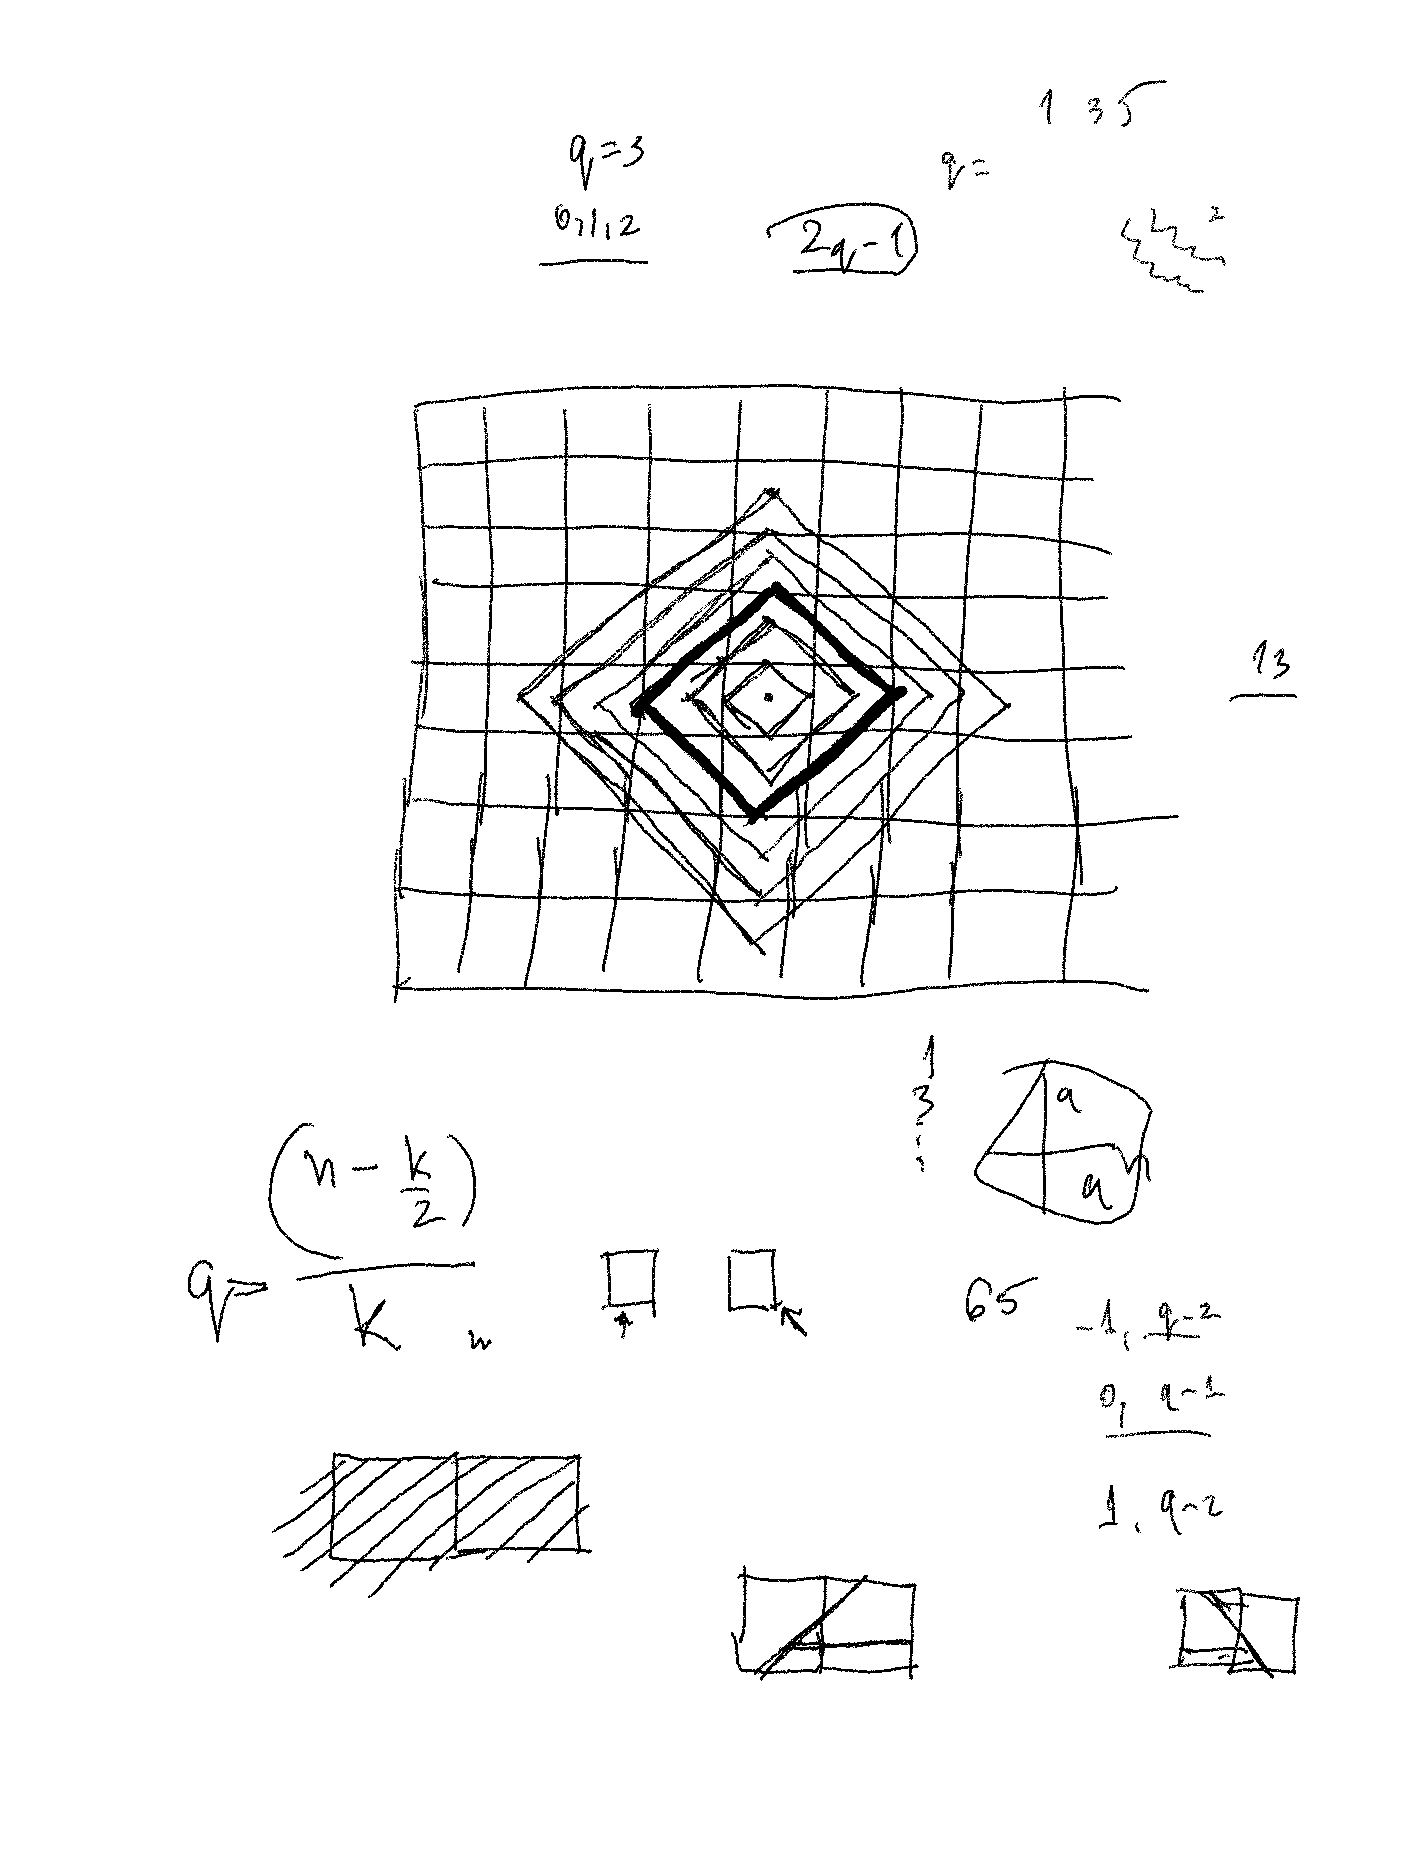 1 3 5
q=3
q=
0,1,2
2q-1
2
13
1
3
⋮
q
q
(n - k/2)
q =
k
n
65
-1, q-2
0, q-1
1, q-2